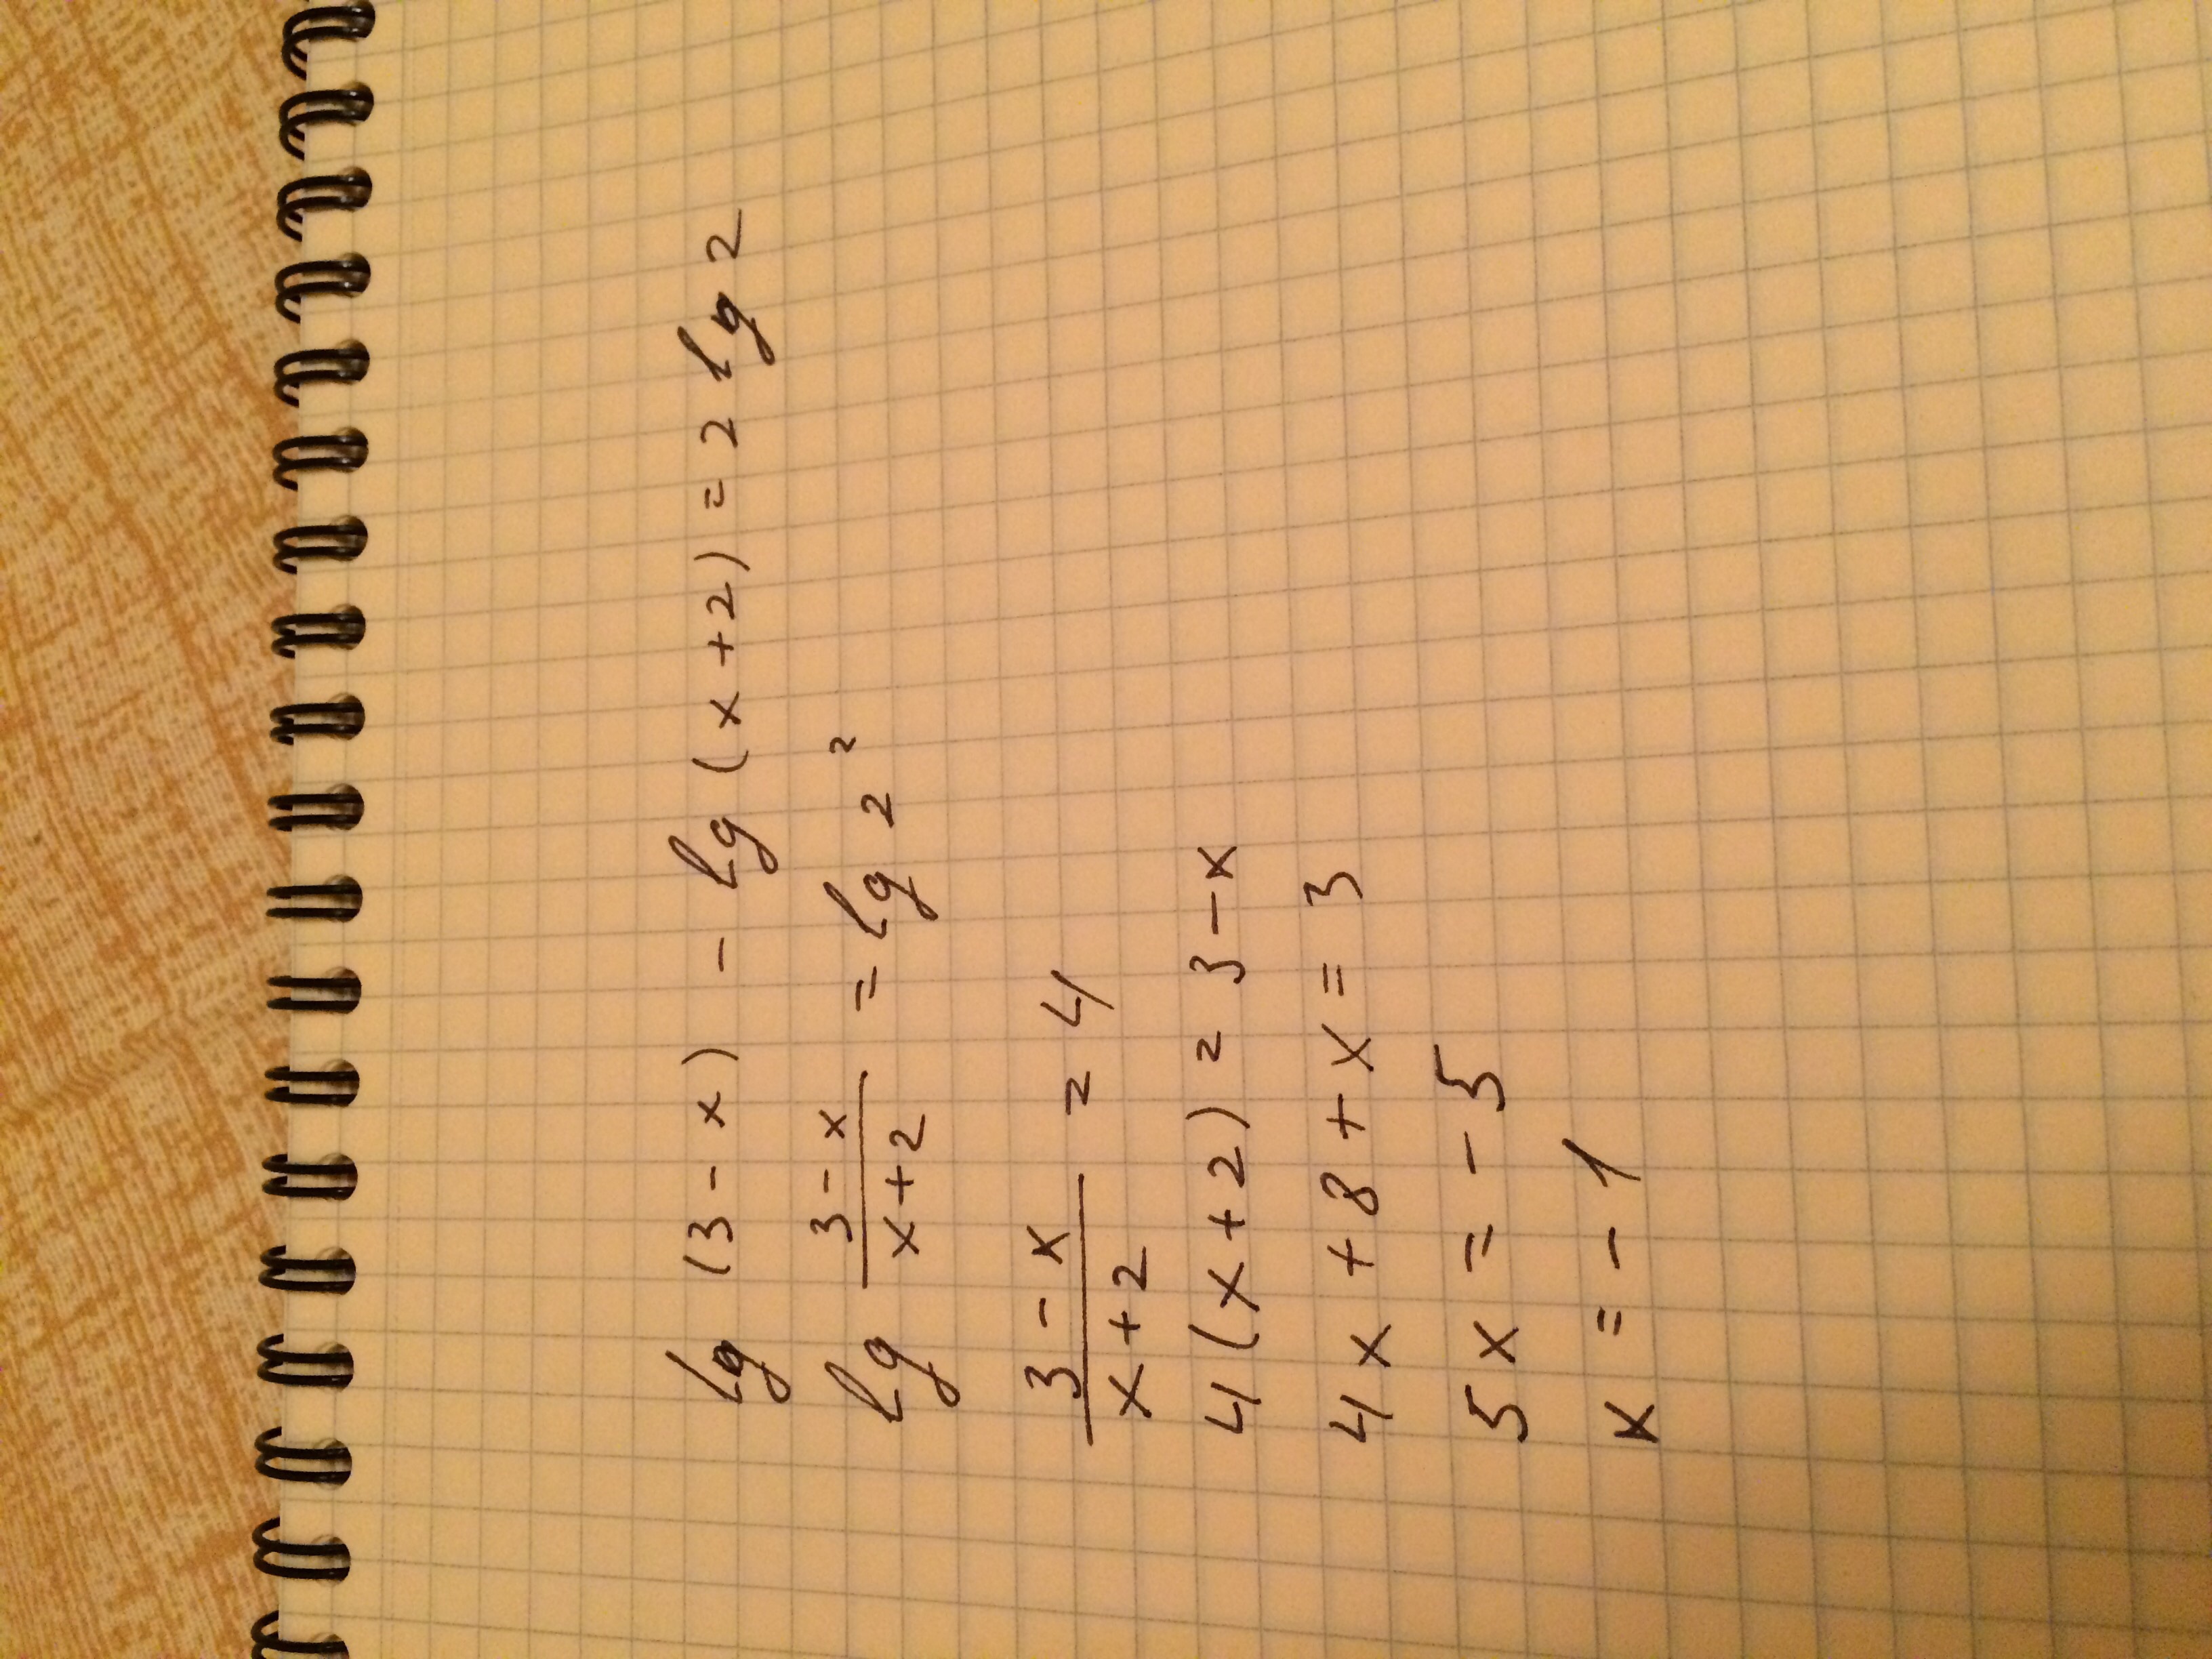 lg (3-x) - lg (x+2) = 2 lg 2
lg \frac{3-x}{x+2} = lg 2²
\frac{3-x}{x+2} = 4
4(x+2) = 3-x
4x+8+x=3
5x=-5
x=-1